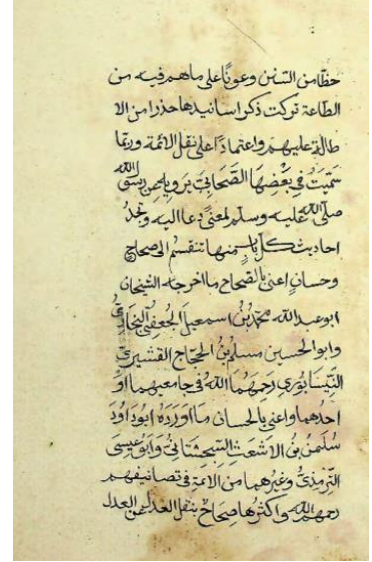 حظّا من السنن وعونًا على ما هم فيه من
الطاعة تركت ذكر اسانيدها حذرا من الا
طالة عليهم واعتمادًا على نقل الائمة وربّما
سَمَّيْتُ فِي بَعْضِهَا الصَّحَابِيَّ يرويه عن رسول الله
صلّى الله عليه وسلم لمعنًى دعا اليه وتجدُ
احاديث كلّ باب منها تنقسم الى صحاح
وحسان اعنى بالصحاح ما اخرجه الشيخان
ابو عبد الله محمّد بن اسمعيل الجُعفيُّ البخاريُّ
وابو الحسين مسلم بن الحجّاج القشيريّ
النّيسابوري رحمهما الله في جامعيهما او
احدهما واعنى بالحسان ما اَوْرَدَهُ ابو داوٗد
سُليمن بن الاشعث السّجستانيّ وَابو عيسى
الترمذيُّ وغيرهما من الائمة في تصانيفهم
رحمهم الله واكثرها صحاحٌ بنقل العدل عن العدل